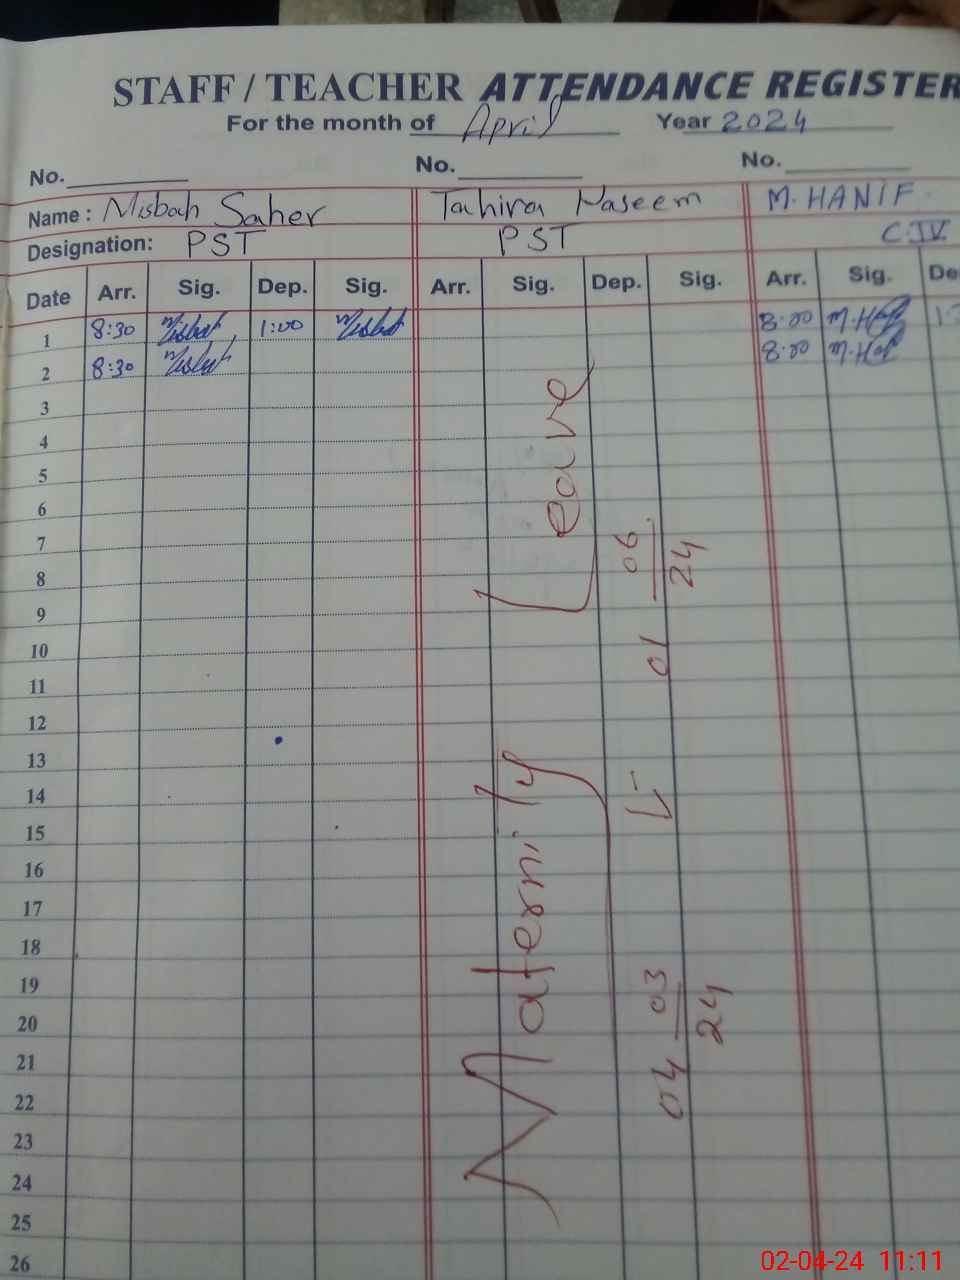 STAFF / TEACHER ATTENDANCE REGISTER
For the month of April Year 2024
No. No. No.
Name : Misbah Saher Tahira Naseem M. HANIF.
Designation: PST PST C.IV.
Date Arr. Sig. Dep. Sig. Arr. Sig. Dep. Sig. Arr. Sig. De
1 8:30 Misbah 1:00 Misbah 8:00 M.Hanif
2 8:30 Misbah 8:00 M.Hanif
3
4
5
6
7
8
9
10
11
12
13
14
15
16
17
18
19
20
21
22
23
24
25
26
Maternity Leave
04 03/24 01 06/24
02-04-24 11:11